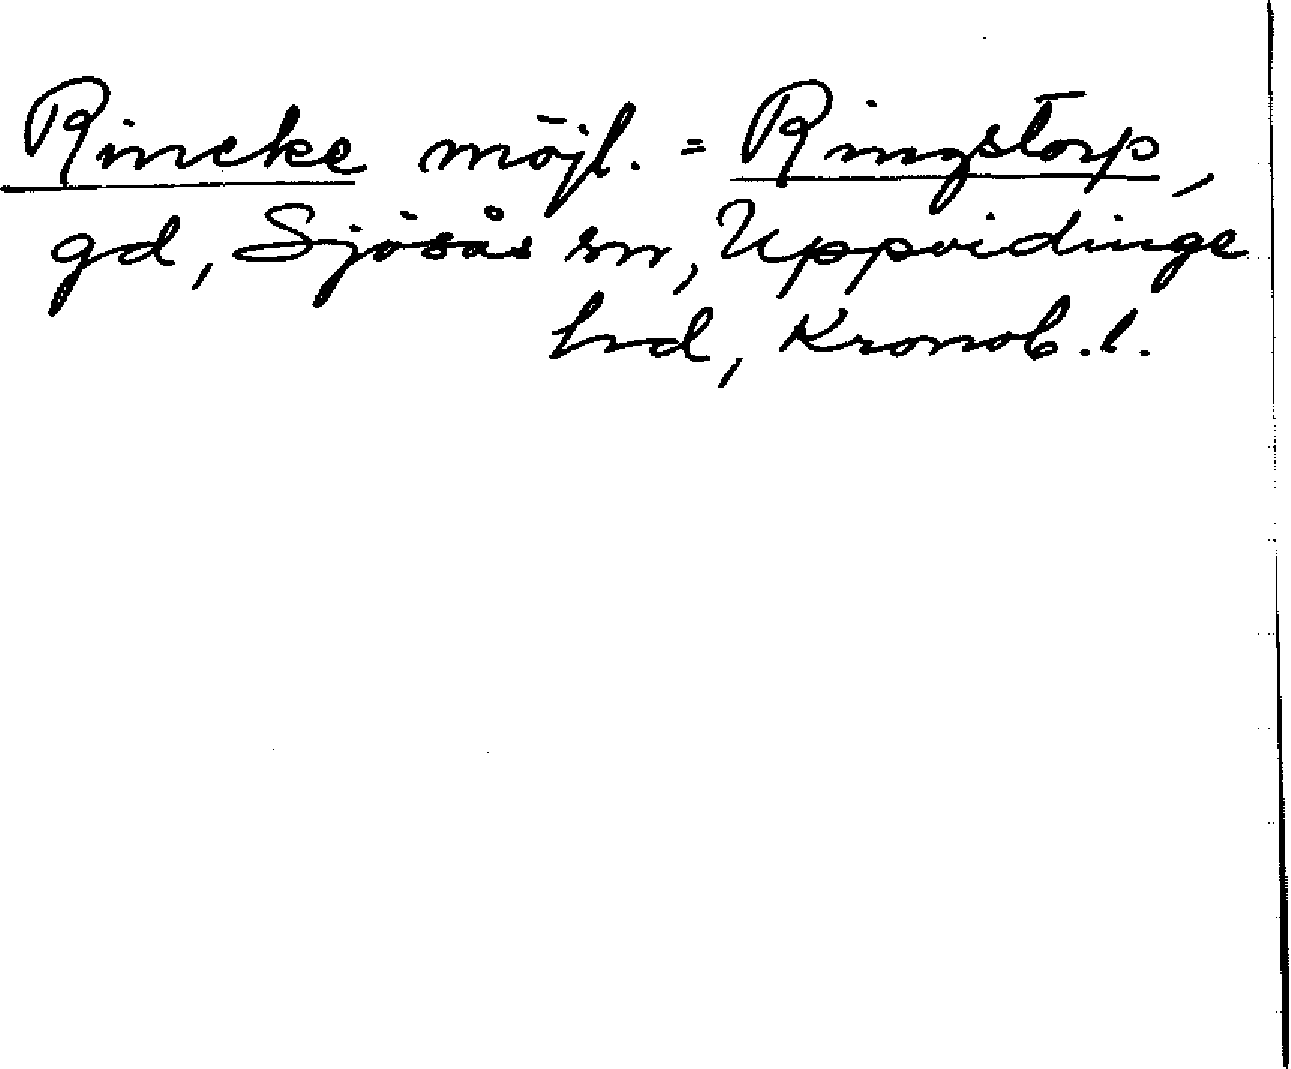 Rincke möjl. = Ringstorp,
gd, Sjösås sn, Uppvidinge
hd, Kronob. l.